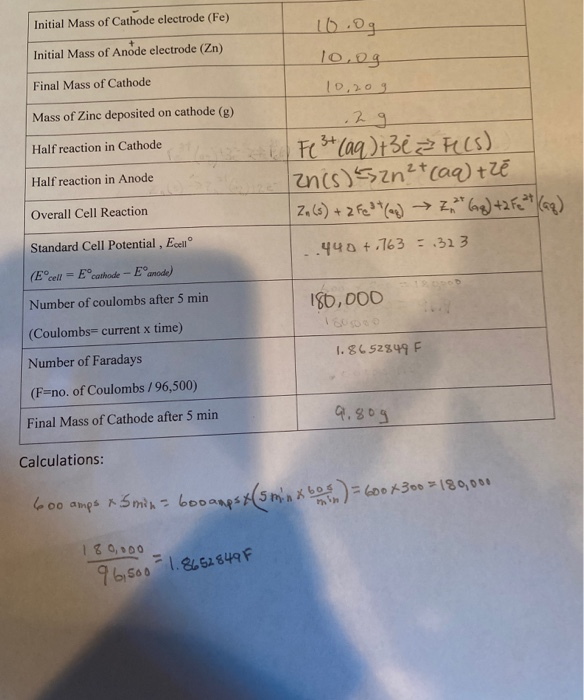 Initial Mass of Cathode electrode (Fe) 10.0g
Initial Mass of Anode electrode (Zn) 10.0g
+
Final Mass of Cathode 10.20g
Mass of Zinc deposited on cathode (g) .2 g
Half reaction in Cathode Fe³⁺(aq)+3ē⇌Fe(s)
Half reaction in Anode Zn(s)⇆Zn²⁺(aq)+2ē
Overall Cell Reaction Zn(s) + 2Fe³⁺(aq) → Zn²⁺(aq)+2Fe²⁺(aq)
Standard Cell Potential , Ecell° -.440 +.763 = .323
(E°cell = E°cathode – E°anode)
Number of coulombs after 5 min 180,000
(Coulombs= current x time)
Number of Faradays 1.8652849 F
(F=no. of Coulombs / 96,500)
Final Mass of Cathode after 5 min 9.80g
Calculations:
600 amps x 5min = 600amps x(5min x 60s/min)=600x300=180,000
180,000/96,500 = 1.8652849F